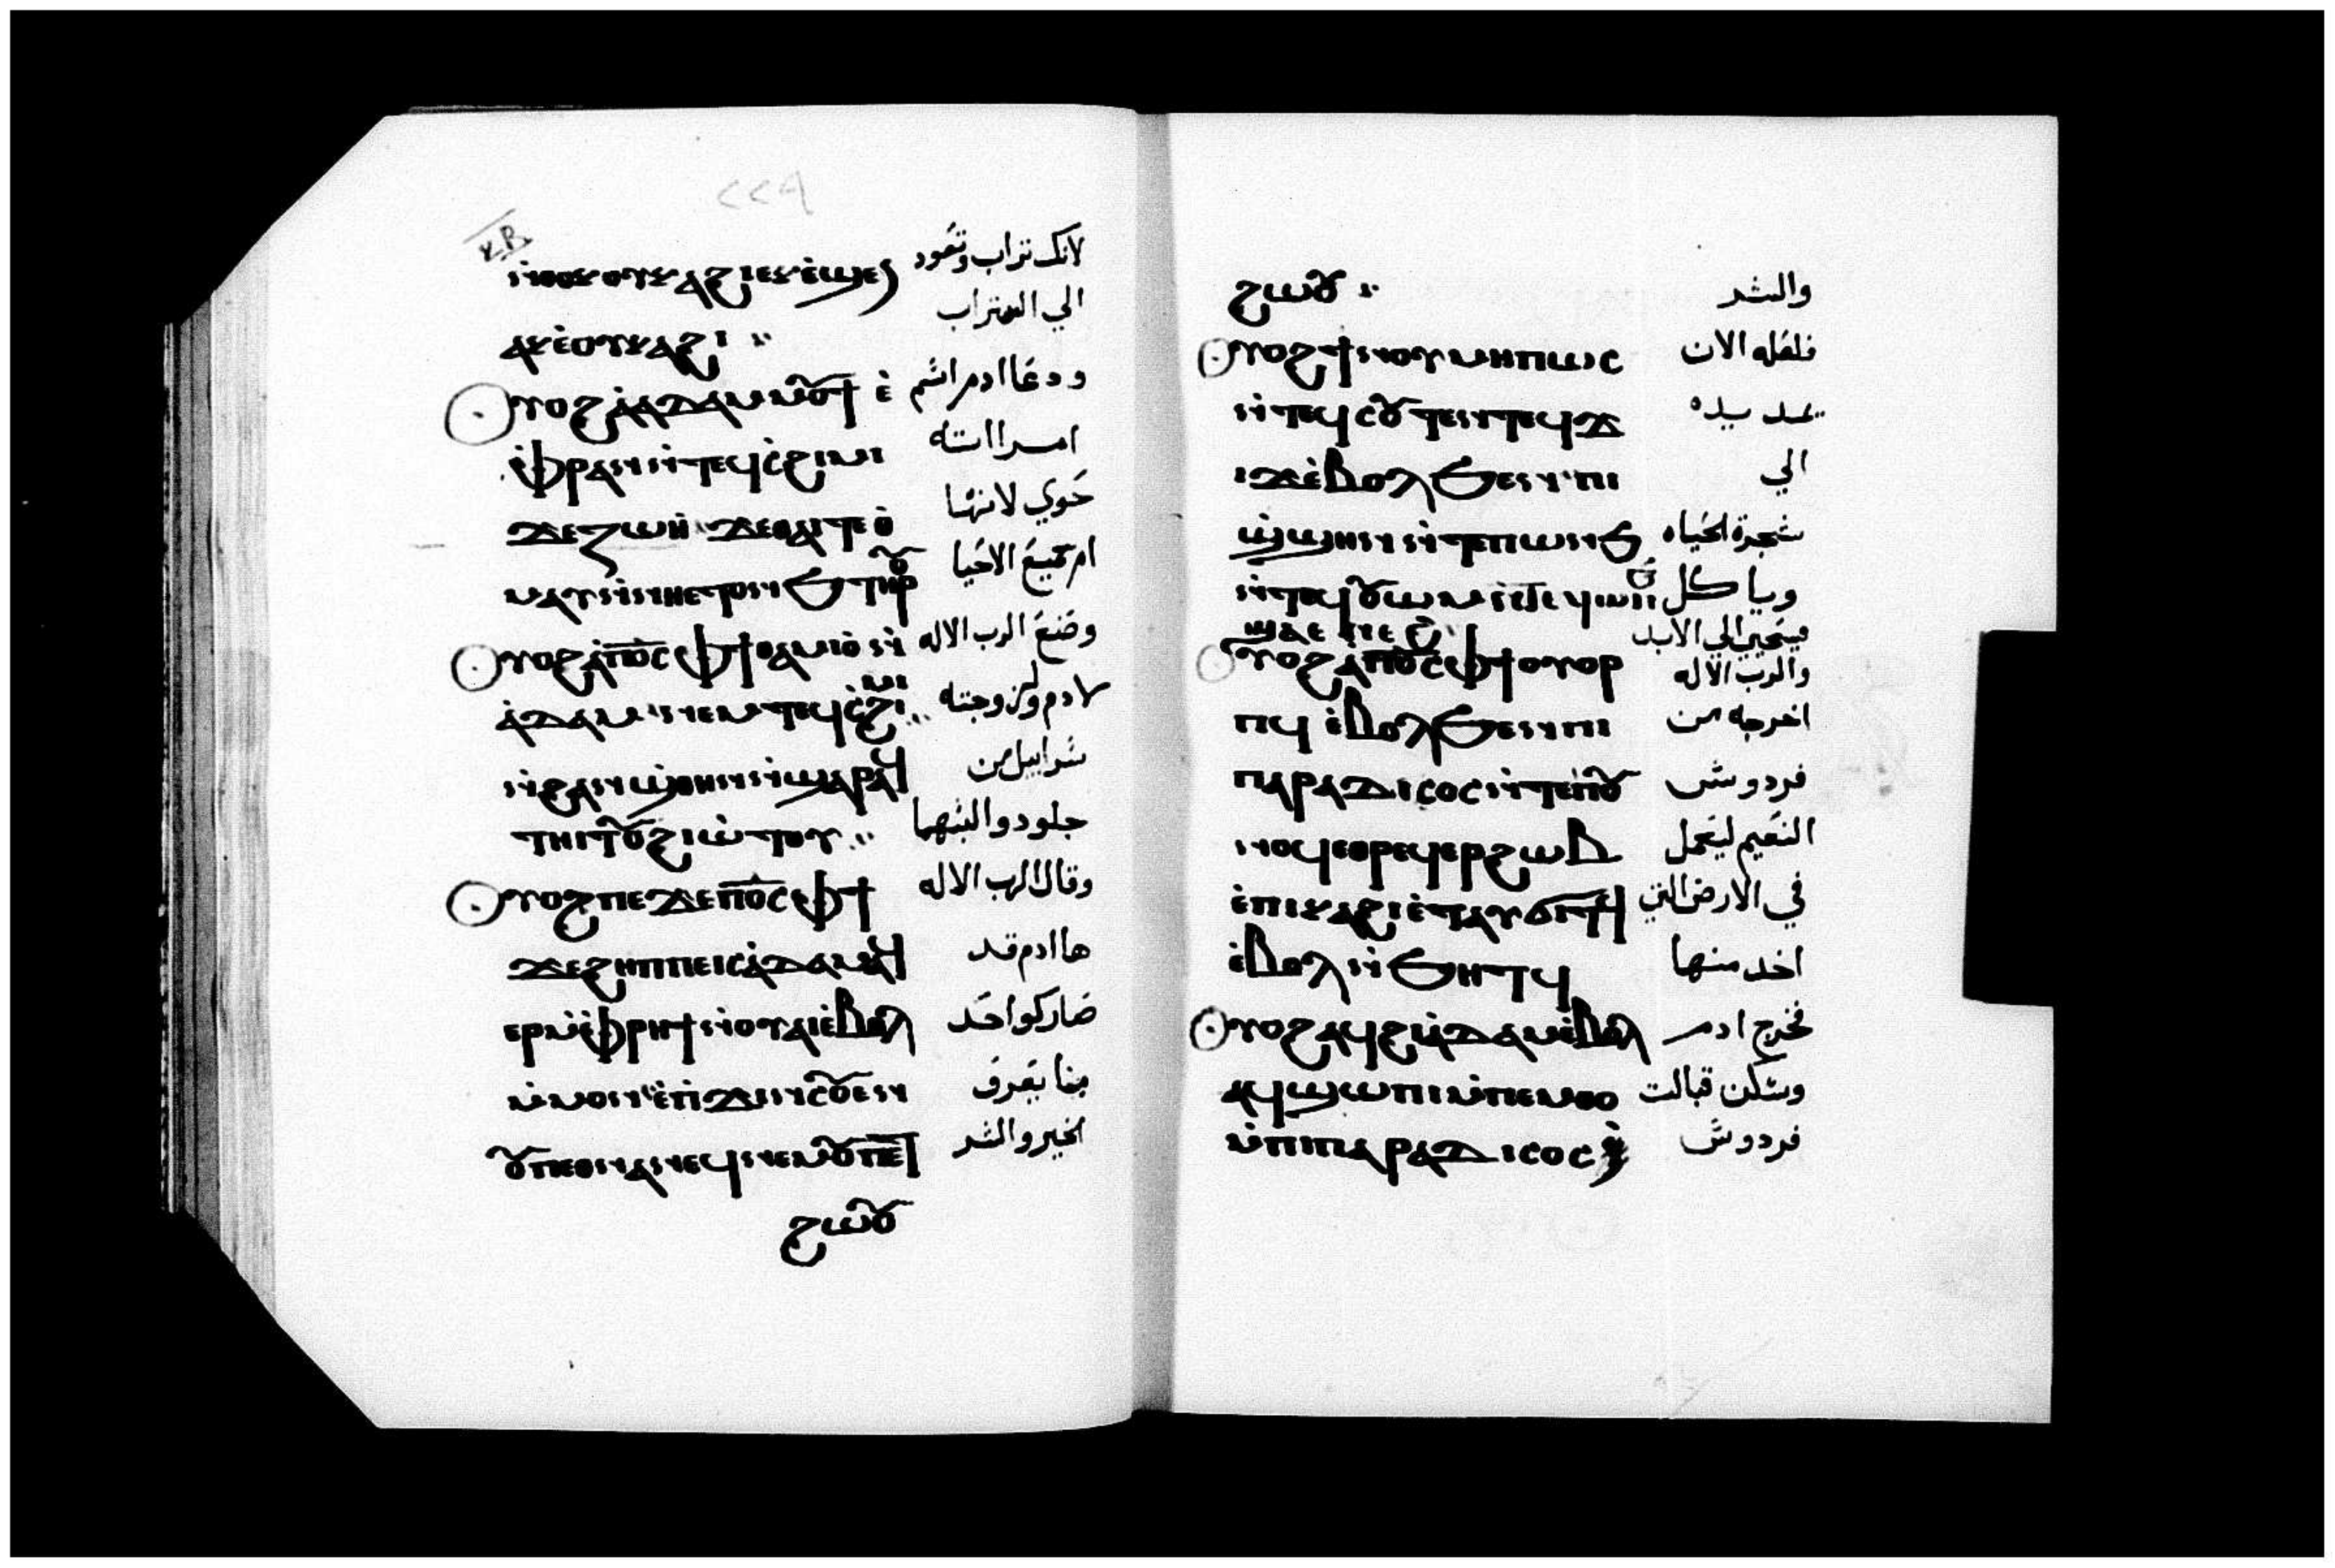 ⲕⲃ
ⲛ̀ⲑⲟⲕ ⲟⲩⲕⲁϩⲓ ⲉⲕⲉ̀ϣⲉ لانك تراب وتعود
ⲁⲕ ⲉ̀ⲟⲩⲕⲁϩⲓ الي التراب
ⲟⲩⲟϩ ⲁ̀ⲇⲁⲙ ⲙⲟⲩϯ ⲉ̀ ودعا ادم اسم
ⲫ̀ⲣⲁⲛ ⲛ̀ⲧⲉϥⲥ̀ϩⲓⲙⲓ امراته
ϫⲉ ⲍⲱⲏ̀ ϫⲉ ⲑⲁⲓ ⲧⲉ ⲑ̀ حوي لانها
ⲙⲁⲩ ⲛ̀ⲛⲏⲉⲧⲟⲛϧ ⲧⲏⲣⲟⲩ ام جميع الاحيا
ⲟⲩⲟϩ ⲁ̀ ⲡⲟ̅ⲥ̅ ⲫϯ ⲑⲁⲙⲓⲟ̀ ⲛ̀ وصنع الرب الاله
ⲁ̀ⲇⲁⲙ ⲛⲉⲙ ⲧⲉϥⲥ̀ϩⲓⲙⲓ لادم ولزوجته
ⲛ̀ϩⲁⲛϣ̀ⲑⲏⲛ ⲛ̀ϣⲁⲣ ⲁϥ سرابيل من
ⲧⲏⲓⲧⲟⲩ ϩⲓⲱ̀ⲧⲟⲩ جلود والبسهما
ⲟⲩⲟϩ ⲡⲉϫⲉ ⲡⲟ̅ⲥ̅ ⲫϯ وقال الرب الاله
ϫⲉ ϩⲏⲡⲡⲉ ⲓⲥ ⲁ̀ⲇⲁⲙ ⲁϥ ها ادم قد
ⲉⲣ ⲙ̀ⲫ̀ⲣⲏϯ ⲛ̀ⲟⲩⲁⲓ ⲉ̀ⲃⲟⲗ صار كواحد
ⲙ̀ⲙⲟⲛ ⲉ̀ⲡ̀ϫⲓⲛⲥⲟⲩⲉⲛ منا يعرف
ⲟⲩⲡⲉⲑⲛⲁⲛⲉϥ ⲛⲉⲙ ⲟⲩⲡⲉⲧ الخير والشر
ϩⲱⲟⲩ
ϩⲱⲟⲩ والشر
ⲟⲩⲟϩ ϯⲛⲟⲩ ⲙⲏⲡⲱⲥ فلعله الان
ⲛ̀ⲧⲉϥⲥⲟⲩⲧⲉⲛ ⲧⲉϥϫ يمد يده
ⲓϫ ⲉ̀ⲃⲟⲗϧⲉⲛ ⲡⲓ الي
ϣ̀ϣⲏⲛ ⲛ̀ⲧⲉ ⲡⲱⲛϧ شجرة الحياه
ⲛ̀ⲧⲉϥⲟⲩⲱⲙ ⲛ̀ⲧⲉϥⲱⲛϧ وياكل
ϣⲁⲉⲛⲉϩ فيحيى الي الابد
ⲟⲩⲟϩ ⲁ̀ ⲡⲟ̅ⲥ̅ ⲫϯ ⲟⲩⲟⲣ والرب الاله
ⲡϥ ⲉ̀ⲃⲟⲗϧⲉⲛ ⲡⲓ اخرجه من
ⲡⲁⲣⲁⲇⲓⲥⲟⲥ ⲛ̀ⲧⲉ ⲡ̀ⲟⲩ فردوس
ⲛⲟϥ ⲉⲑⲣⲉϥⲉⲣϩⲱⲃ النعيم ليعمل
ⲉ̀ⲡⲓⲕⲁϩⲓ ⲉ̀ⲧⲁⲩϭⲓⲧϥ في الارض التي
ⲉ̀ⲃⲟⲗ ⲛ̀ϧⲏⲧϥ اخد منها
ⲟⲩⲟϩ ⲁϥϩⲓ ⲁ̀ⲇⲁⲙ ⲉ̀ⲃⲟⲗ فخرج ادم
ⲁϥϣⲱⲡⲓ ⲙ̀ⲡⲉⲙⲑⲟ وسكن قبالت
ⲙ̀ⲡⲓⲡⲁⲣⲁⲇⲓⲥⲟⲥ فردوس